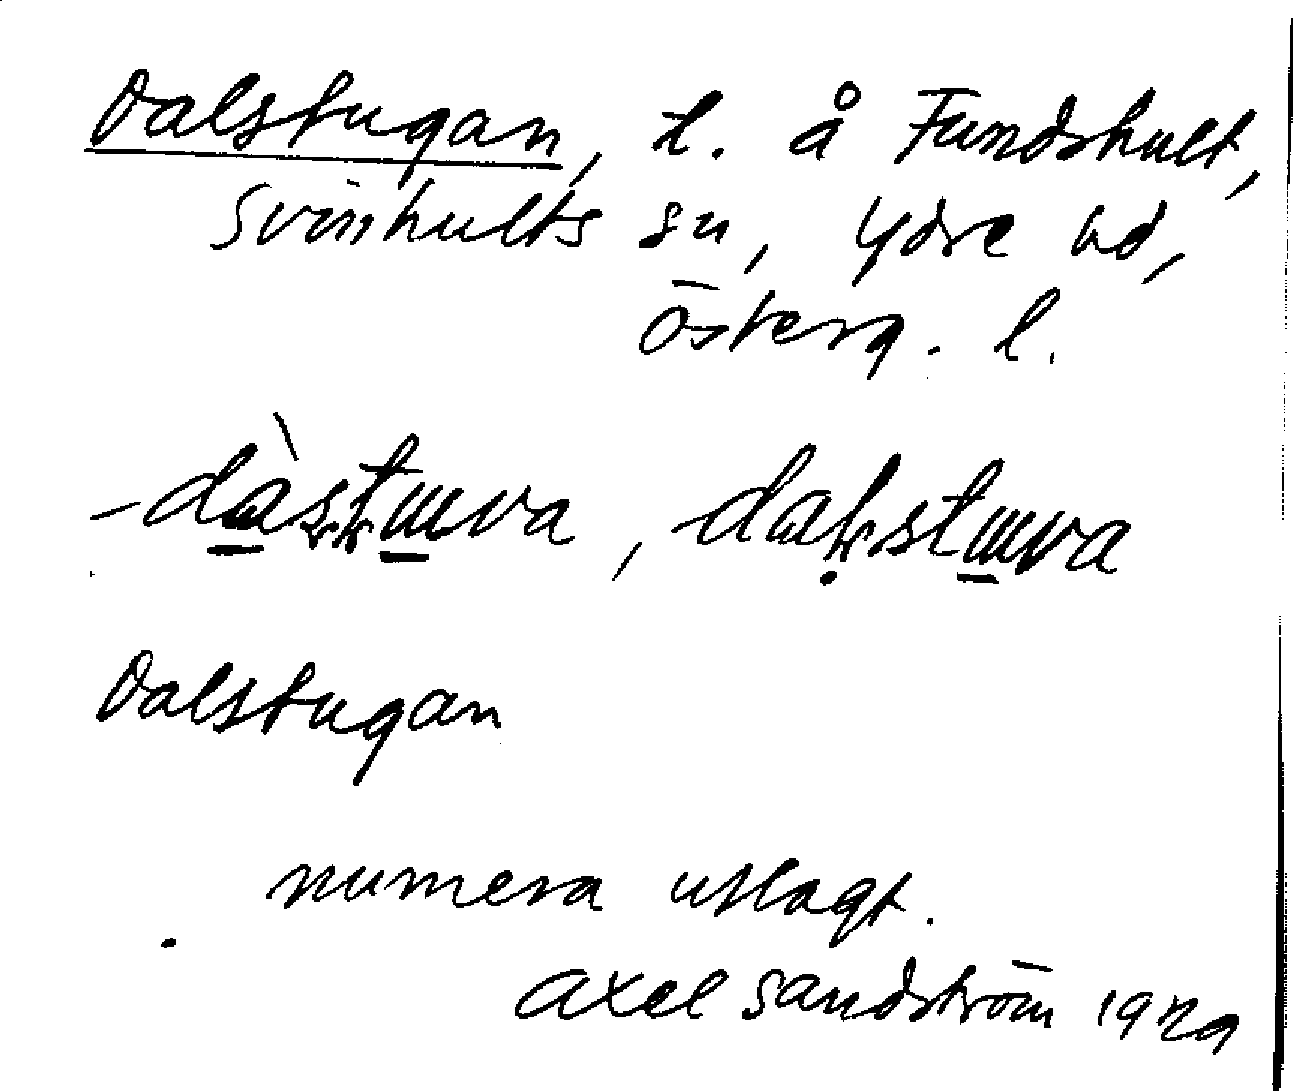 Dalstugan, t. å Fundshult,
Svinhults sn, Ydre hd,
Österg. l.
Dalstugan
numera utlagt.
Axel Sandström 1929